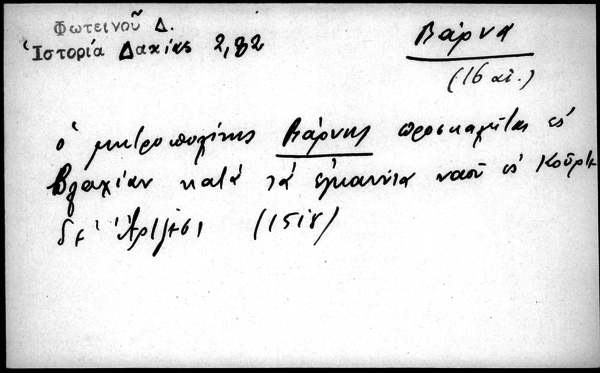 Φωτεινοῦ Δ.
Ἱστορία Δακίας 2,82
Βάρνα
(16 αἰ.)
ὁ μητροπολίτης Βάρνης προσκαλεῖται εἰς
Βλαχίαν κατὰ τὰ ἐγκαίνια ναοῦ εἰς Κούρτε
δε Ἄρτζεσι (1518)